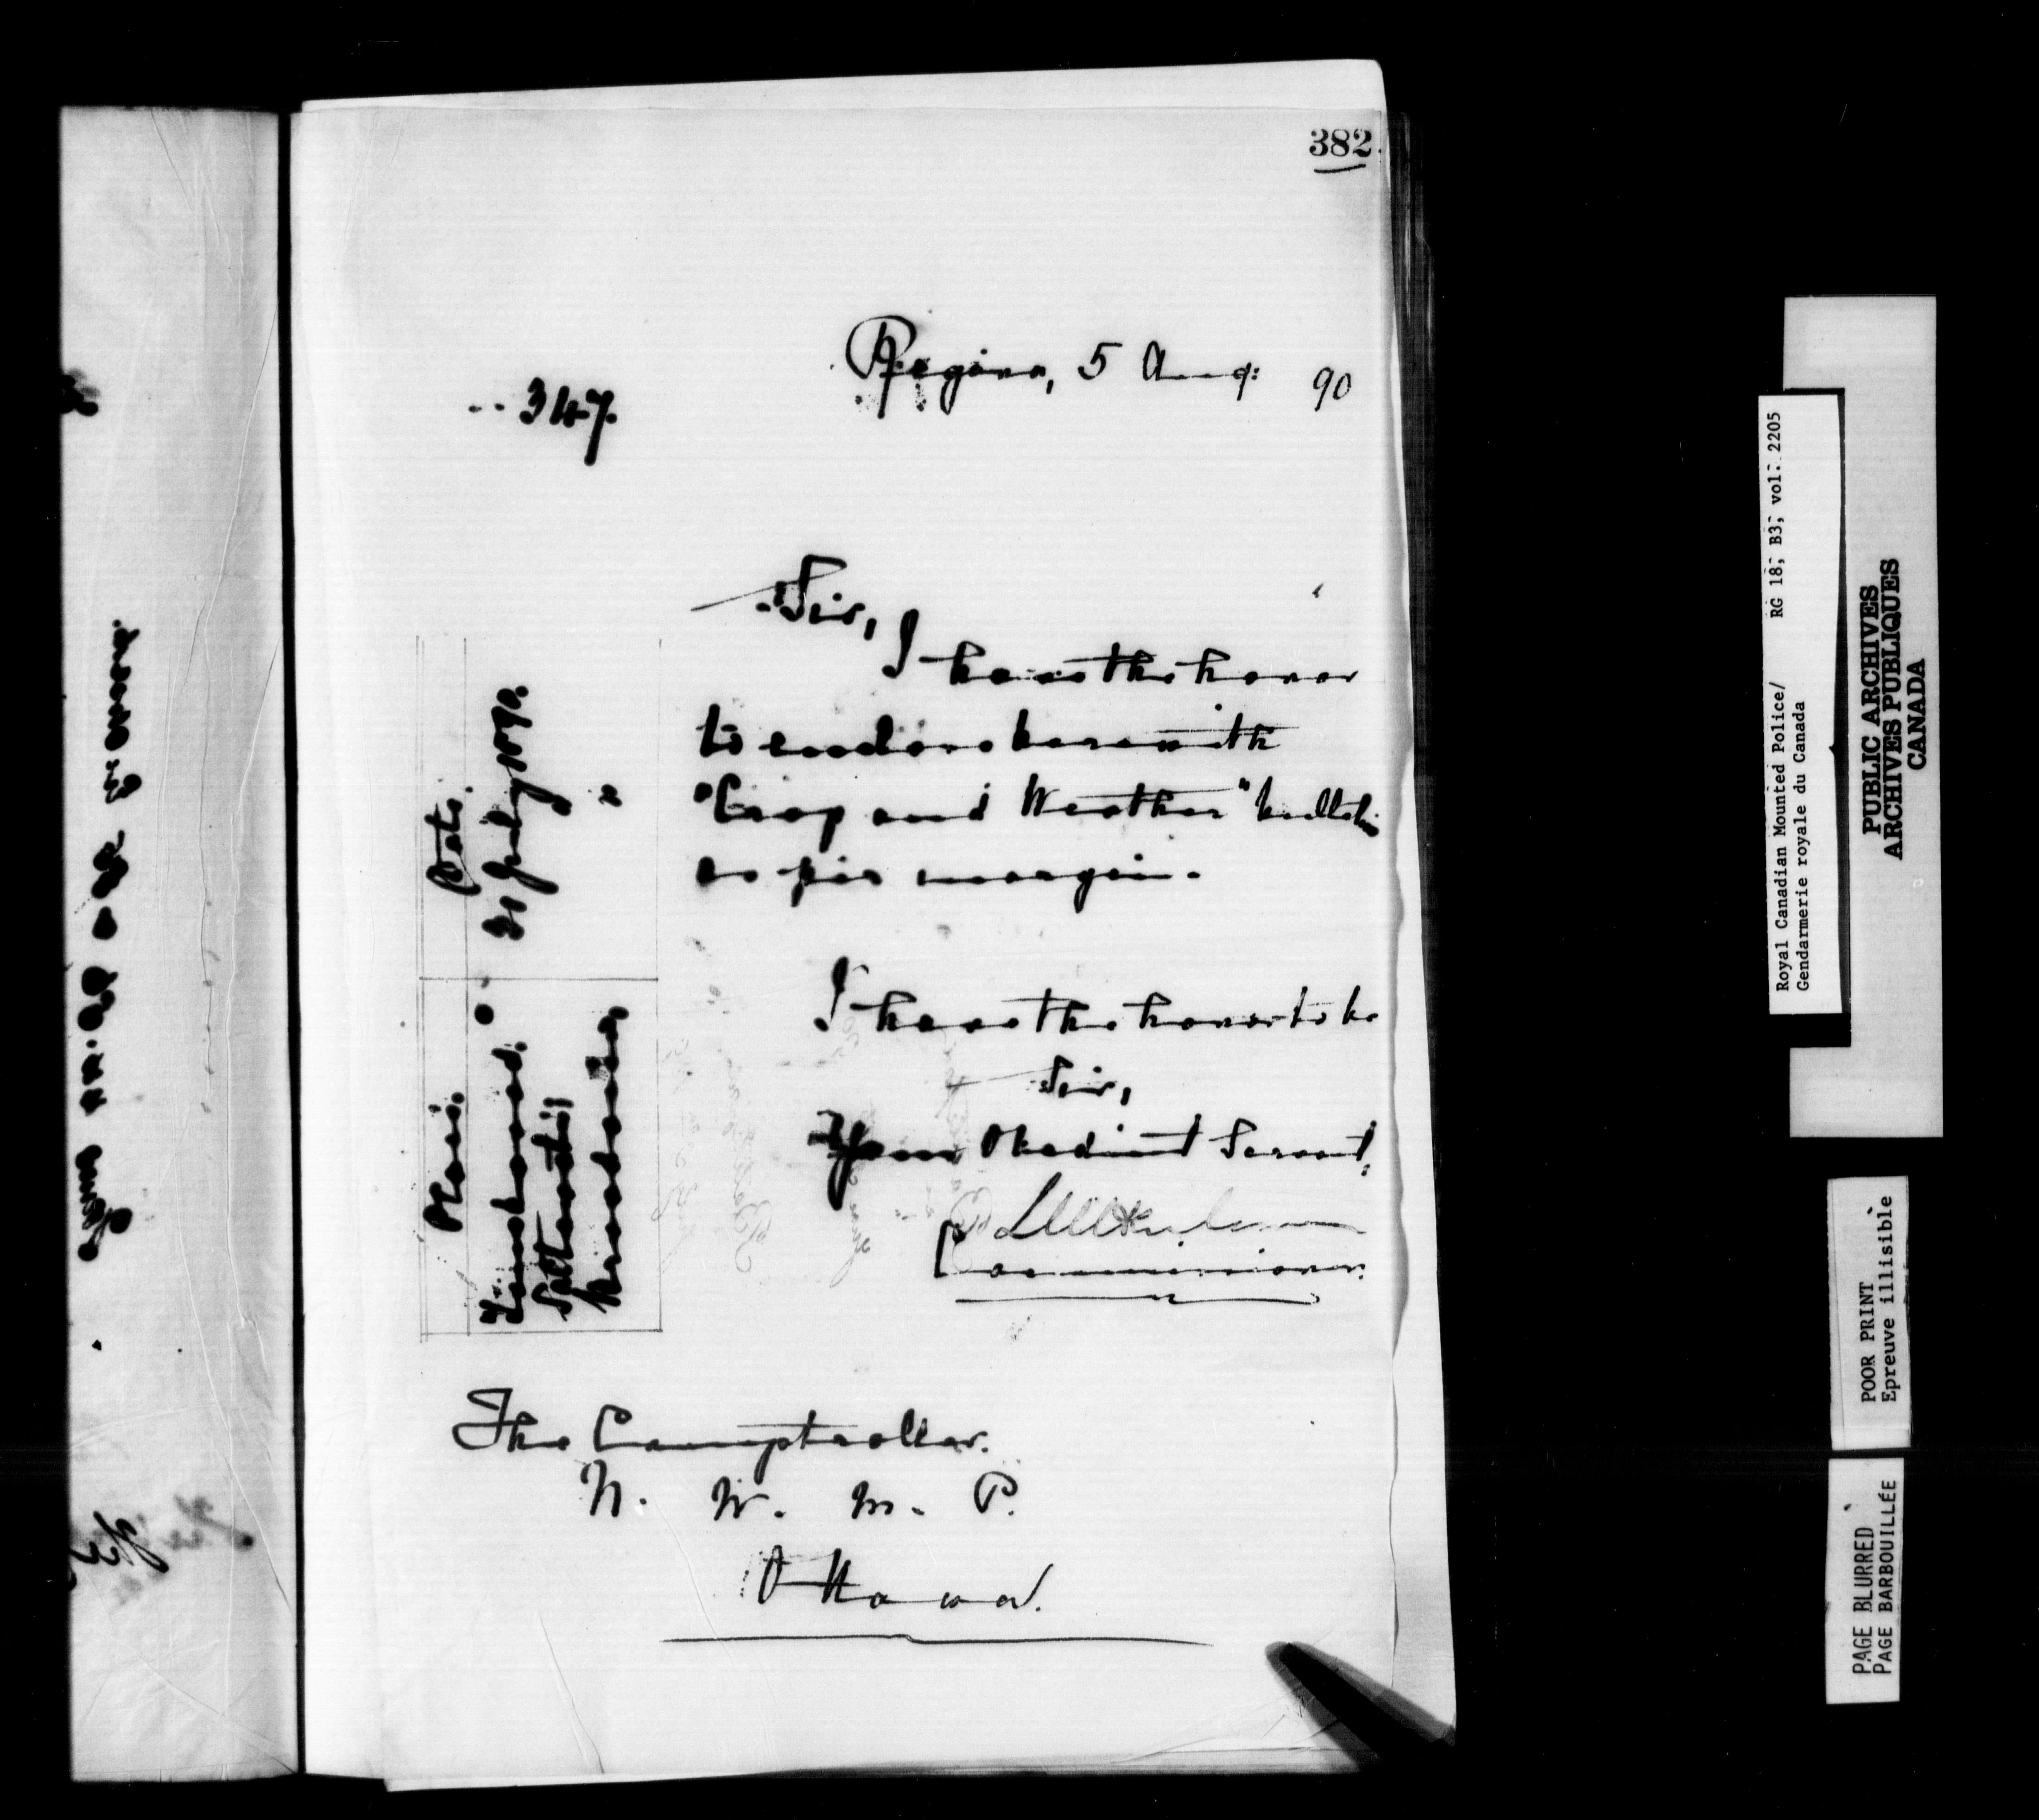 382
Regina, 5 Aug: 90
347.
Sir,
I have the honor
to enclose herewith
"Crop and Weather" bulletin
as per margin.
Place. Date.
31 July 1890.
Saltcoats "
Moosomin
I have the honor to be
Sir,
Your Obedient Servant,
Commissioner.
The Comptroller.
N. W. M. P.
Ottawa.
Royal Canadian Mounted Police/ RG 18, B3, vol. 2205
Gendarmerie royale du Canada
PUBLIC ARCHIVES
ARCHIVES PUBLIQUES
CANADA
POOR PRINT
Epreuve illisible
PAGE BLURRED
PAGE BARBOUILLÉE